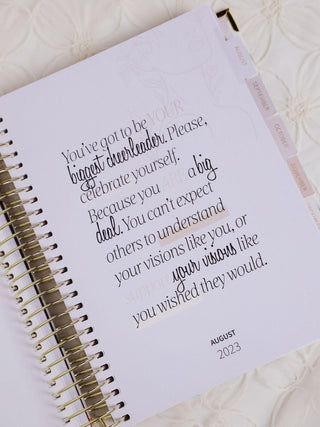 You've got to be YOUR
biggest cheerleader. Please,
celebrate yourself.
Because you ARE a big
deal. You can't expect
others to understand
your visions like you, or
support your visions like
you wished they would.
AUGUST
2023
AUGUST
SEPTEMBER
OCTOBER
NOVEMBER